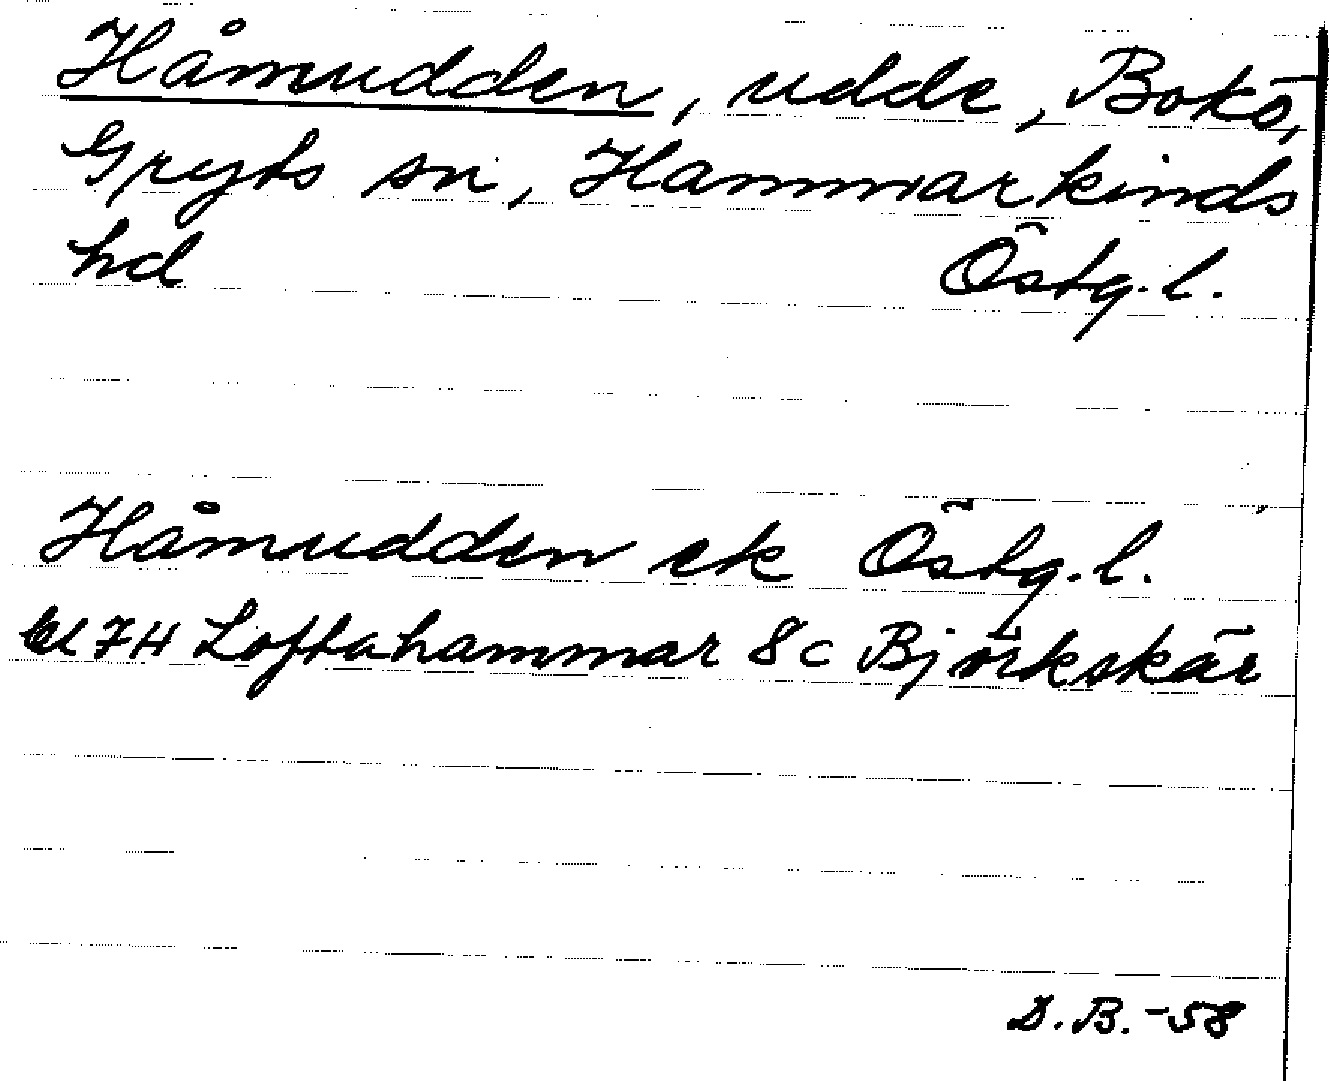 Håmudden, udde, Bokö,
Gryts sn, Hammarkinds
hd Östg.l.
Håmudden ek Östg.l.
bl 7H Loftahammar 8c Björkskär
D.B.-58